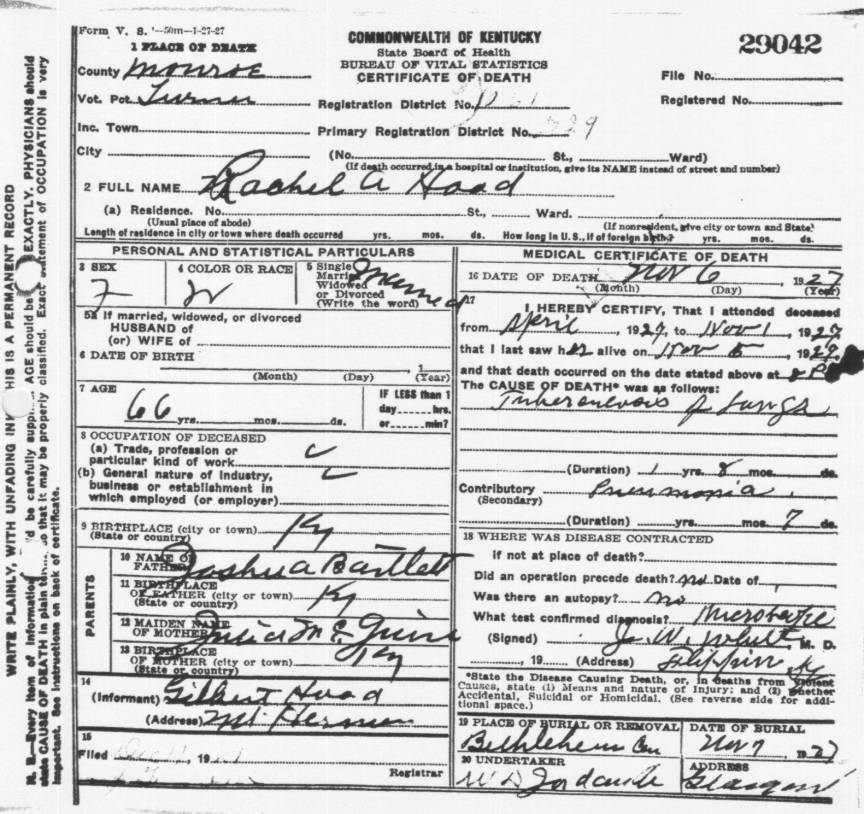 Form V. S. 1—50m—1-27-27
COMMONWEALTH OF KENTUCKY
State Board of Health
BUREAU OF VITAL STATISTICS
CERTIFICATE OF DEATH
29042
File No.
Registered No.
1 PLACE OF DEATH
County Monroe
Vot. Pct. Turner
Registration District No.
Inc. Town
Primary Registration District No.
City
(No. St., Ward)
(If death occurred in a hospital or institution, give its NAME instead of street and number)
2 FULL NAME Rachel A Hood
(a) Residence. No. St., Ward.
(Usual place of abode) (If nonresident, give city or town and State)
Length of residence in city or town where death occurred yrs. mos. ds. How long in U.S., if of foreign birth? yrs. mos. ds.
PERSONAL AND STATISTICAL PARTICULARS
3 SEX 4 COLOR OR RACE 5 Single
Married
Widowed
or Divorced
(Write the word)
F W married
5a If married, widowed, or divorced
HUSBAND of
(or) WIFE of
6 DATE OF BIRTH
(Month) (Day) (Year)
7 AGE IF LESS than 1
day hrs.
or min?
66 yrs. mos. ds.
8 OCCUPATION OF DECEASED
(a) Trade, profession or
particular kind of work
(b) General nature of industry,
business or establishment in
which employed (or employer)
9 BIRTHPLACE (city or town) Ky
(State or country)
PARENTS
10 NAME OF
FATHER Joshua Bartlett
11 BIRTHPLACE
OF FATHER (city or town) Ky
(State or country)
12 MAIDEN NAME
OF MOTHER
13 BIRTHPLACE
OF MOTHER (city or town) Ky
(State or country)
14
(Informant) Gilbert Hood
(Address) Mt Herman
15
Filed , 19
Registrar
MEDICAL CERTIFICATE OF DEATH
16 DATE OF DEATH Nov 6 , 1927
(Month) (Day) (Year)
17 I HEREBY CERTIFY, That I attended deceased
from April , 1927, to Nov 1 , 1927
that I last saw her alive on Nov 5 , 1927,
and that death occurred on the date stated above at 8 P
The CAUSE OF DEATH* was as follows:
Tuberculosis of Lungs
(Duration) 1 yrs. 8 mos. ds.
Contributory Pneumonia
(Secondary)
(Duration) yrs. mos. 7 ds.
18 WHERE WAS DISEASE CONTRACTED
if not at place of death?
Did an operation precede death? no Date of
Was there an autopsy? no
What test confirmed diagnosis? Microscope
(Signed) J. W. M. D.
, 19 (Address) Flippin Ky
*State the Disease Causing Death, or, in deaths from Violent
Causes, state (1) Means and nature of Injury; and (2) whether
Accidental, Suicidal or Homicidal. (See reverse side for addi-
tional space.)
19 PLACE OF BURIAL OR REMOVAL DATE OF BURIAL
Bethlehem Cem Nov 7 1927
20 UNDERTAKER ADDRESS
Glasgow
WRITE PLAINLY, WITH UNFADING THIS IS A PERMANENT RECORD
N. B.—Every item of information should be carefully AGE should be EXACTLY. PHYSICIANS should
state CAUSE OF DEATH in plain so that it may be properly classified. Exact statement of OCCUPATION is very
important. See instructions on back of certificate.